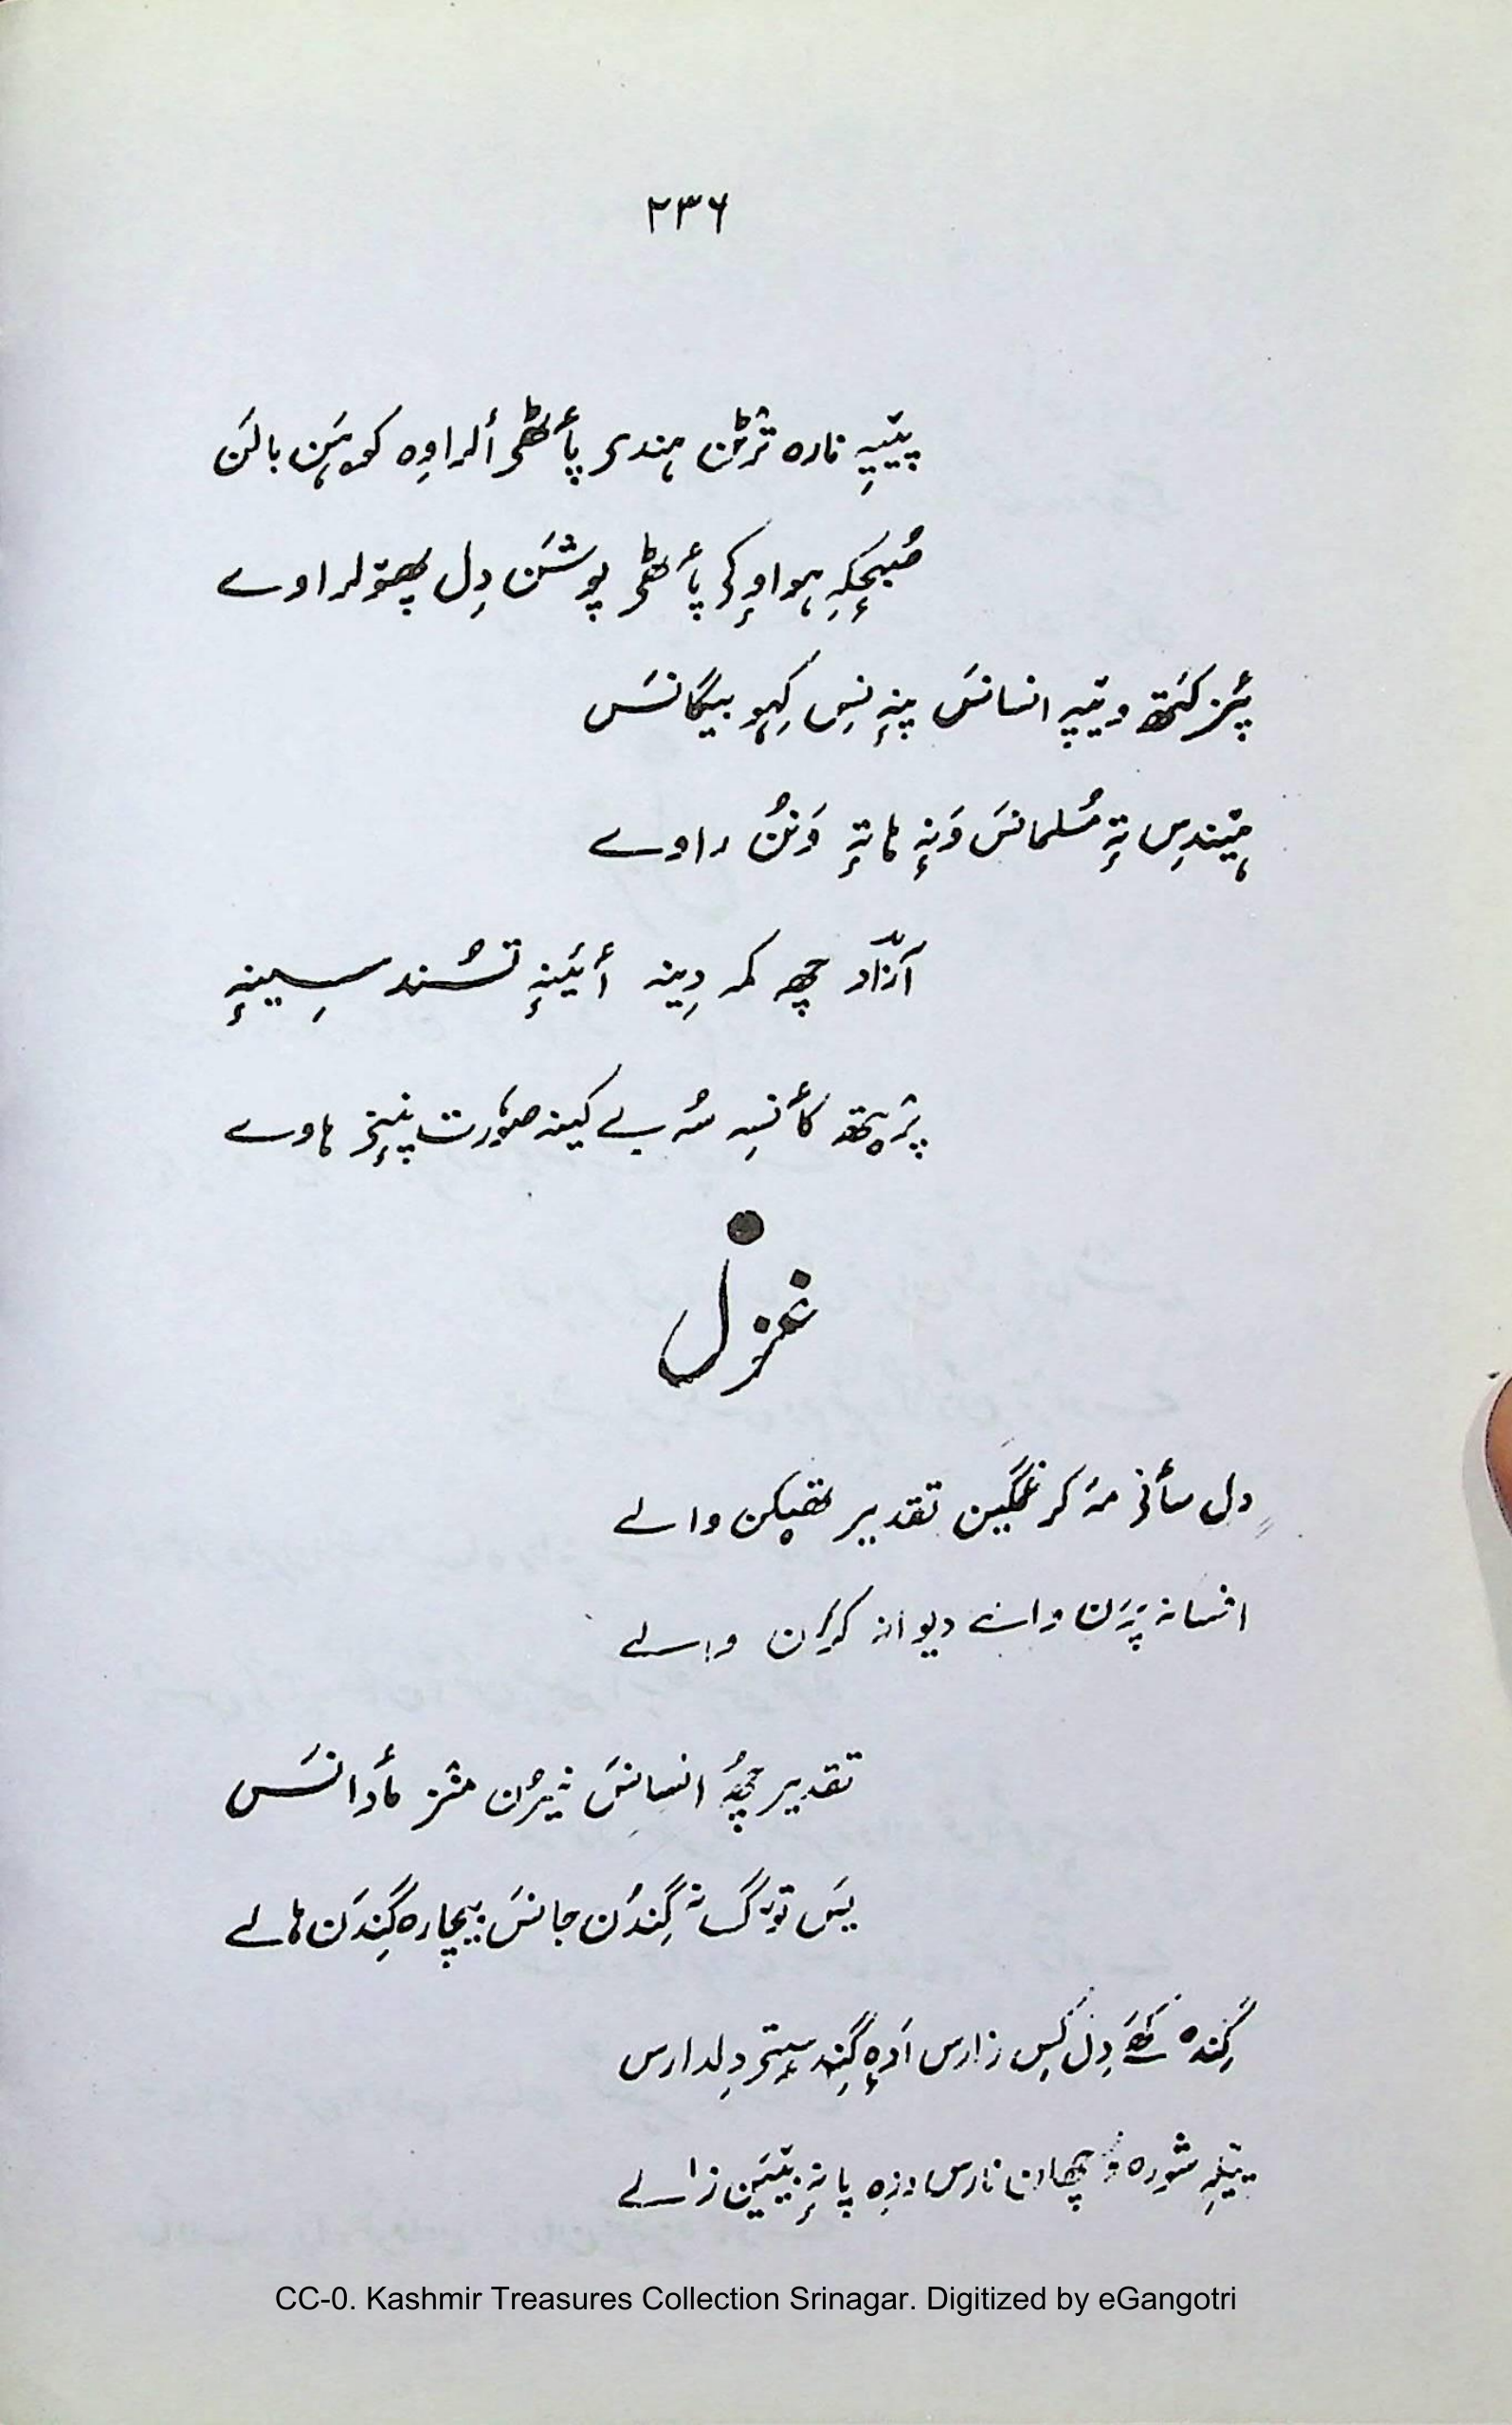 ۲۳۶
پیٚیہِ نارہ ترٛٹن ہندی پٲٹھی ألراوِہ کوہَن بالَن
صُبحٕکہِ ہواوٕکی پٲٹھی پوشَن دِل پھۄلراوے
پٔز کَتھ ویٚپہِ انسانَس پنہٕ نِس کِہو بیگانَس
ہیٚندِس تہٕ مُسلمانَس وَنہٕ ہا تہٕ وَنُن راوے
آزاد چھہ کمہ دِینہ أئینہٕ تسُند سِینہٕ
پرٛیتھ کٲنسہِ سُہ بے کینہ صوٗرت پنٕنی ہاوے
غزل
دِل سٲنی مہٕ کر غمگین تقدیر لیکھن والے
افسانہ پرَن والے دیوانہ کرَن والے
تقدیر چھُ انسانَس نیرُن منٛز مٲدانَس
یَس تورگ نہ گِندُن جانَس بیچارہ گِندَن ہالے
گِندہ دِل کِس زارس اَدہٕ گِند سیٟتی دِلدارس
ییٚلہِ شورہ چھان نارس دزہ پانہٕ بیٚیَن زالے
CC-0. Kashmir Treasures Collection Srinagar. Digitized by eGangotri